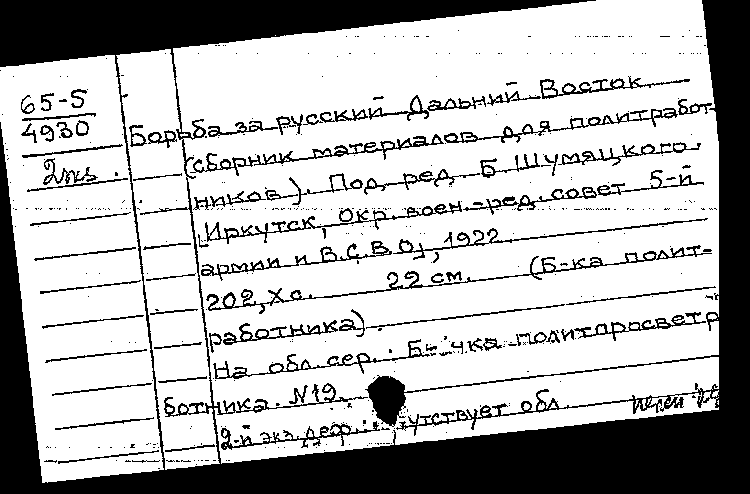 65-5
4930
2экз.
Борьба за русский Дальний Восток
(сборник материалов для политработ-
ников). Под ред. Б. Шумяцкого.
[Иркутск, Окр. воен.-ред. совет 5-й
армии и В.С.В.О], 1922.
202, X с. 22 см. (Б-ка полит-
работника).
На обл. сер.: Б- чка политпросветр
ботника. N19.
2-й экз. деф.: утствует обл.